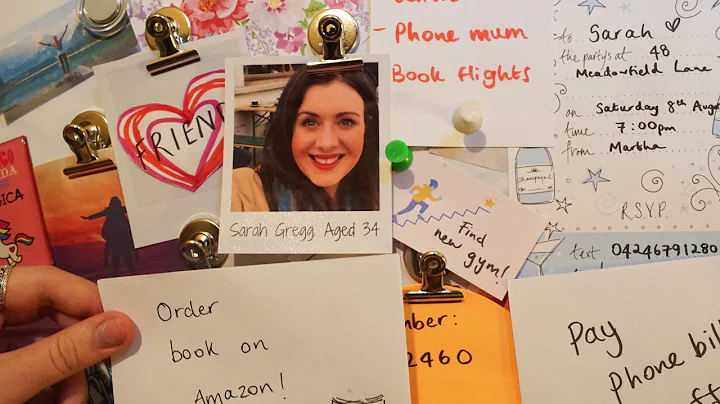 - Phone mum
Book flights
to Sarah
the party's at 48
Meadowfield Lane
on Saturday 8th Aug
time 7:00pm
from Martha
R.S.V.P.
text 04246791280
champagne
FRIEND
Sarah Gregg. Aged 34
Find
new gym!
Order
book on
Amazon!
mber:
2460
Pay
phone bil